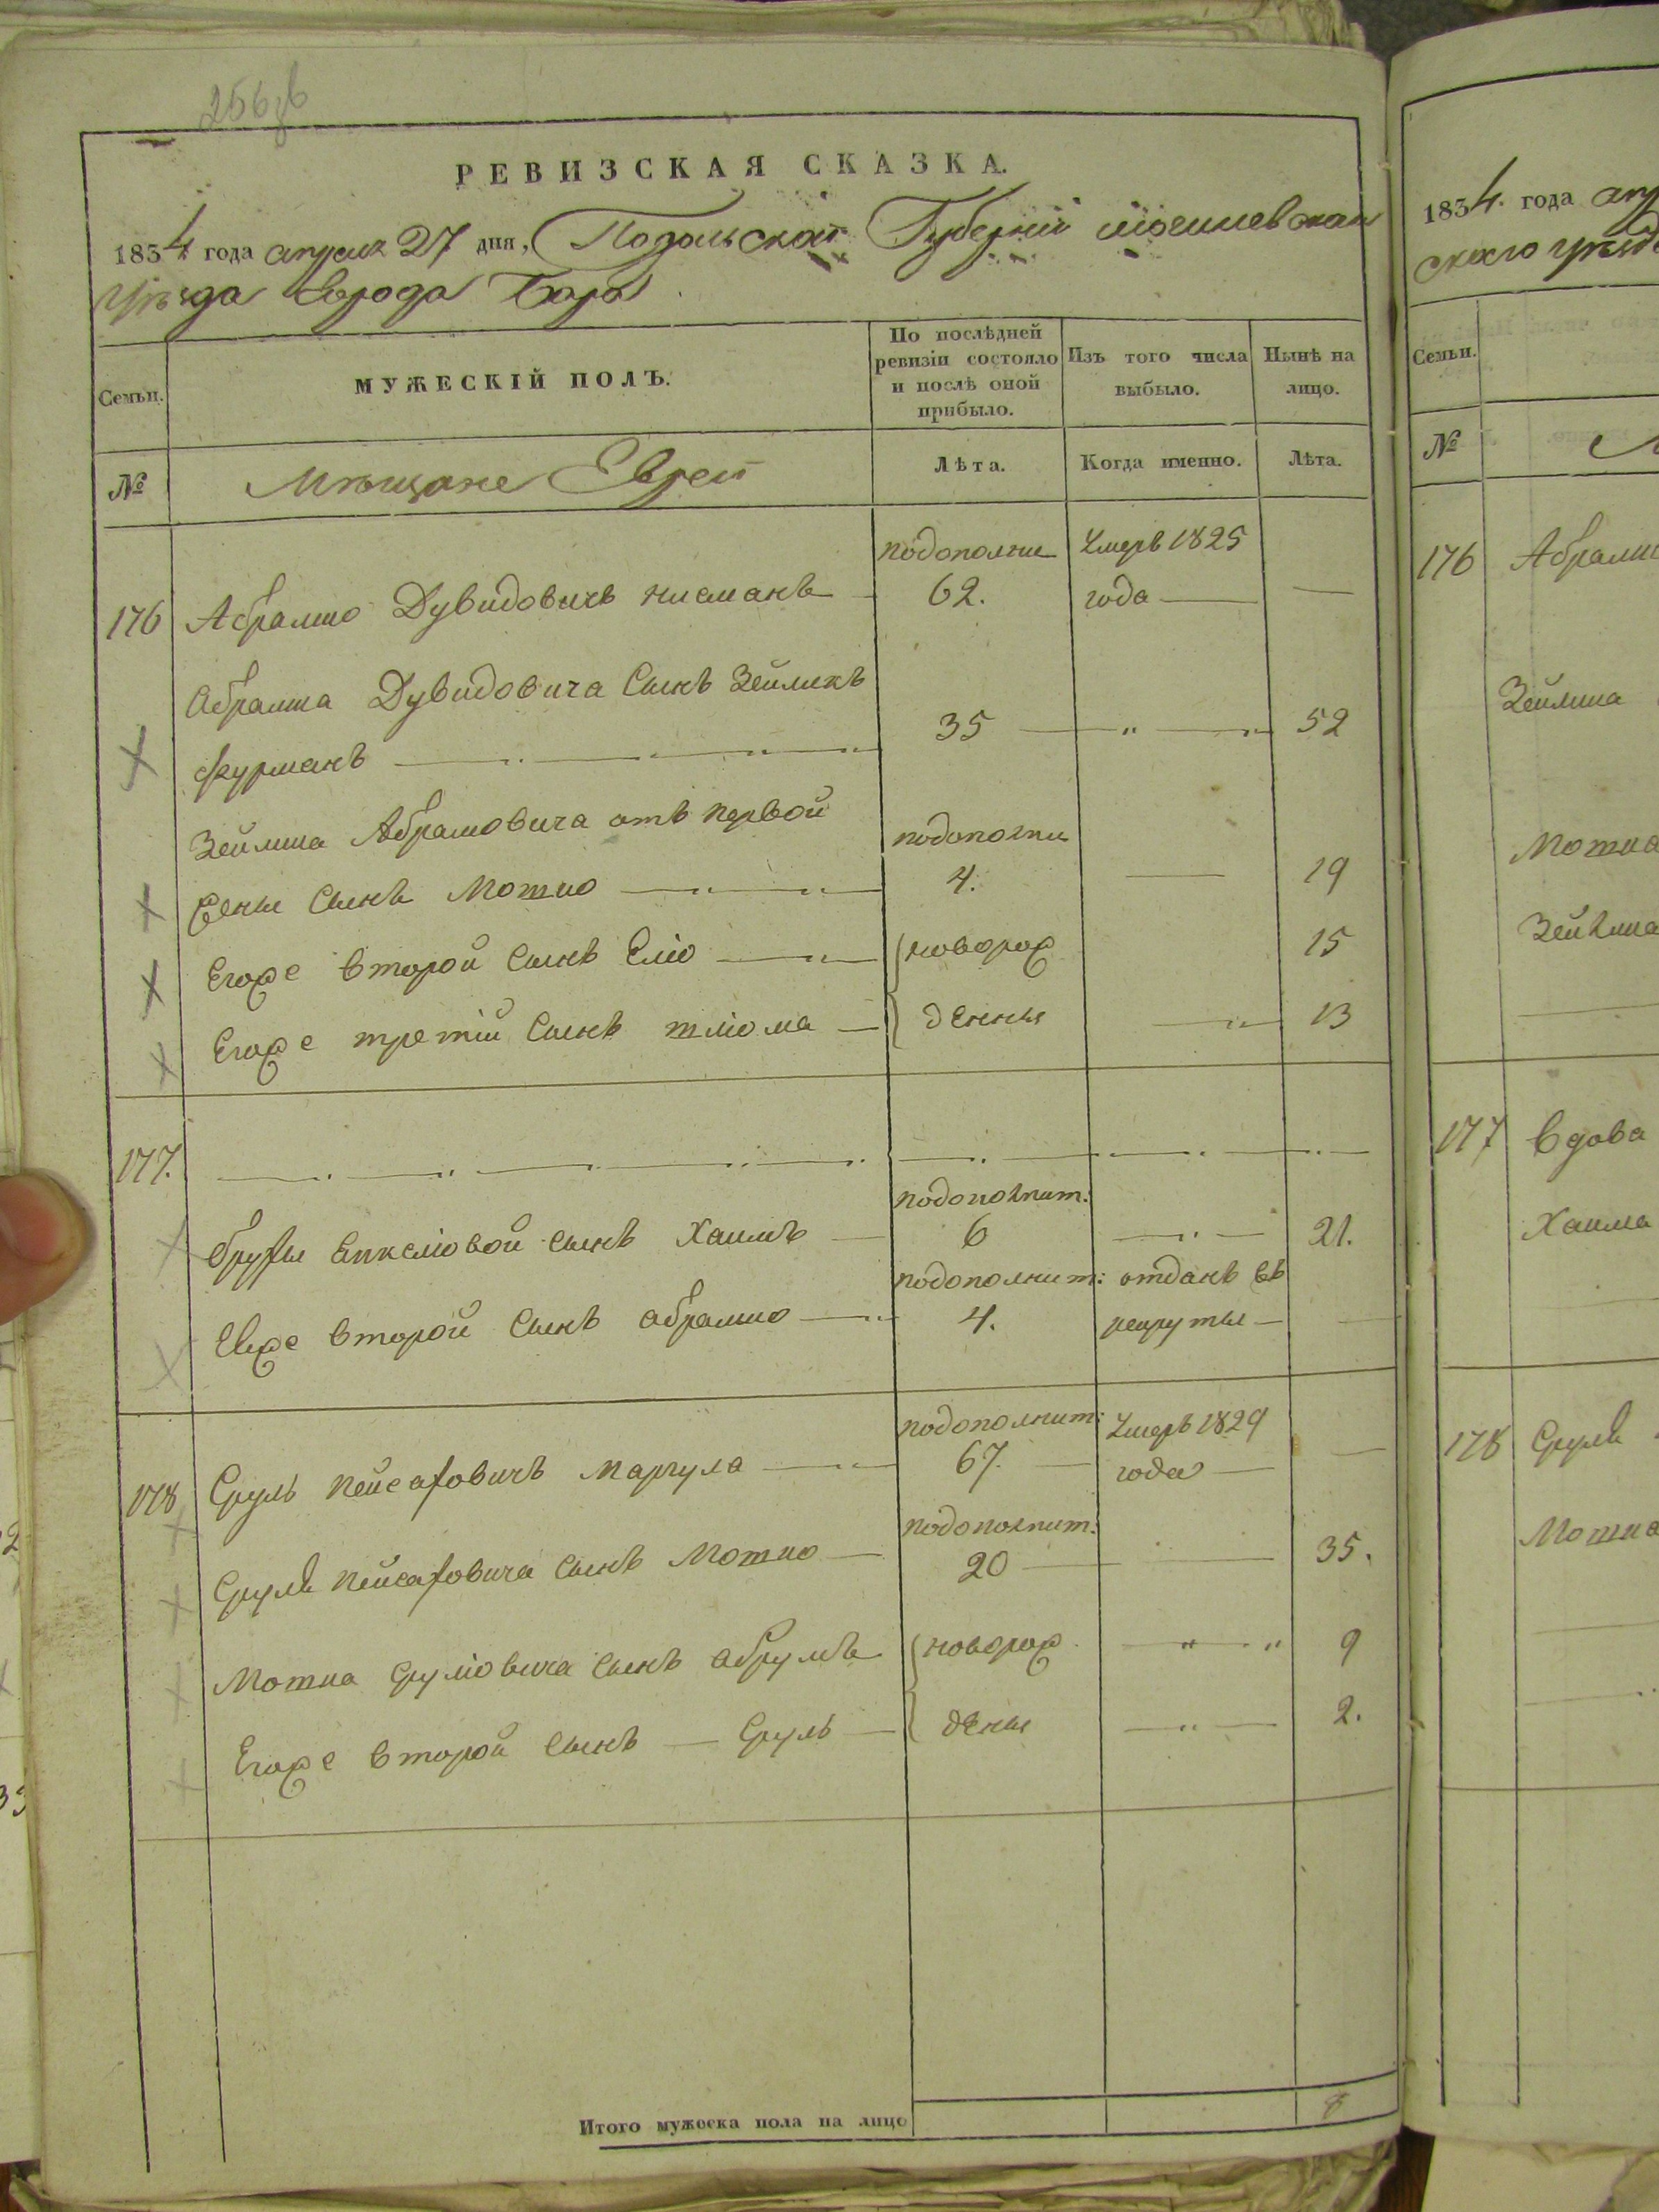 256об
РЕВИЗСКАЯ СКАЗКА.
1834 года апреля 27 дня, Подольской Губернiи могилевскаго
уѣзда города Бара
Семьи.
МУЖЕСКIЙ ПОЛЪ.
По послѣдней ревизiи состояло и послѣ оной прибыло.
Изъ того числа выбыло.
Нынѣ на лицо.
№
Мѣщане Евреи
Лѣта.
Когда именно.
Лѣта.
176 Абрамко Дувидовичъ подополни 62. Умеръ 1825 года —
Абрамка Дувидовича Сынъ Зейликъ
Фурманъ 35 — 52
Зейлика Абрамовича отъ первой
жены Сынъ Мотіо подополни 4. — 19
Егоже второй Сынъ Еліо новорож 15
Егоже третій Сынъ шліома денныя 13
177.
Сынъ Хаимъ подополнит: 6 — 21.
Ееже второй Сынъ абрамко подополнит: 4. отданъ въ рекруты —
178 Сруль Пейсаховичъ Маргула подополнит: 67. Умеръ 1829 года —
Сруля Пейсаховича Сынъ Мотіо подополнит: 20 — 35.
Мотiя Сруліовича Сынъ новорож 9
Егоже второй Сынъ — Сруль — дены 2.
Итого мужеска пола на лицо 8
1834. года
скаго уѣзд
Семьи.
№
176
Зейлика
177 Вдова
Хаима
178 Сруля